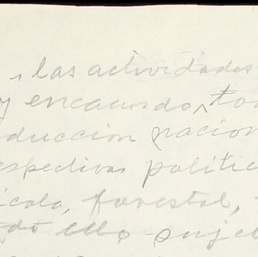 , las actividades
y encausando, to
ducción nacion
espectivas polític
ícola, forestal,
todo ello suje